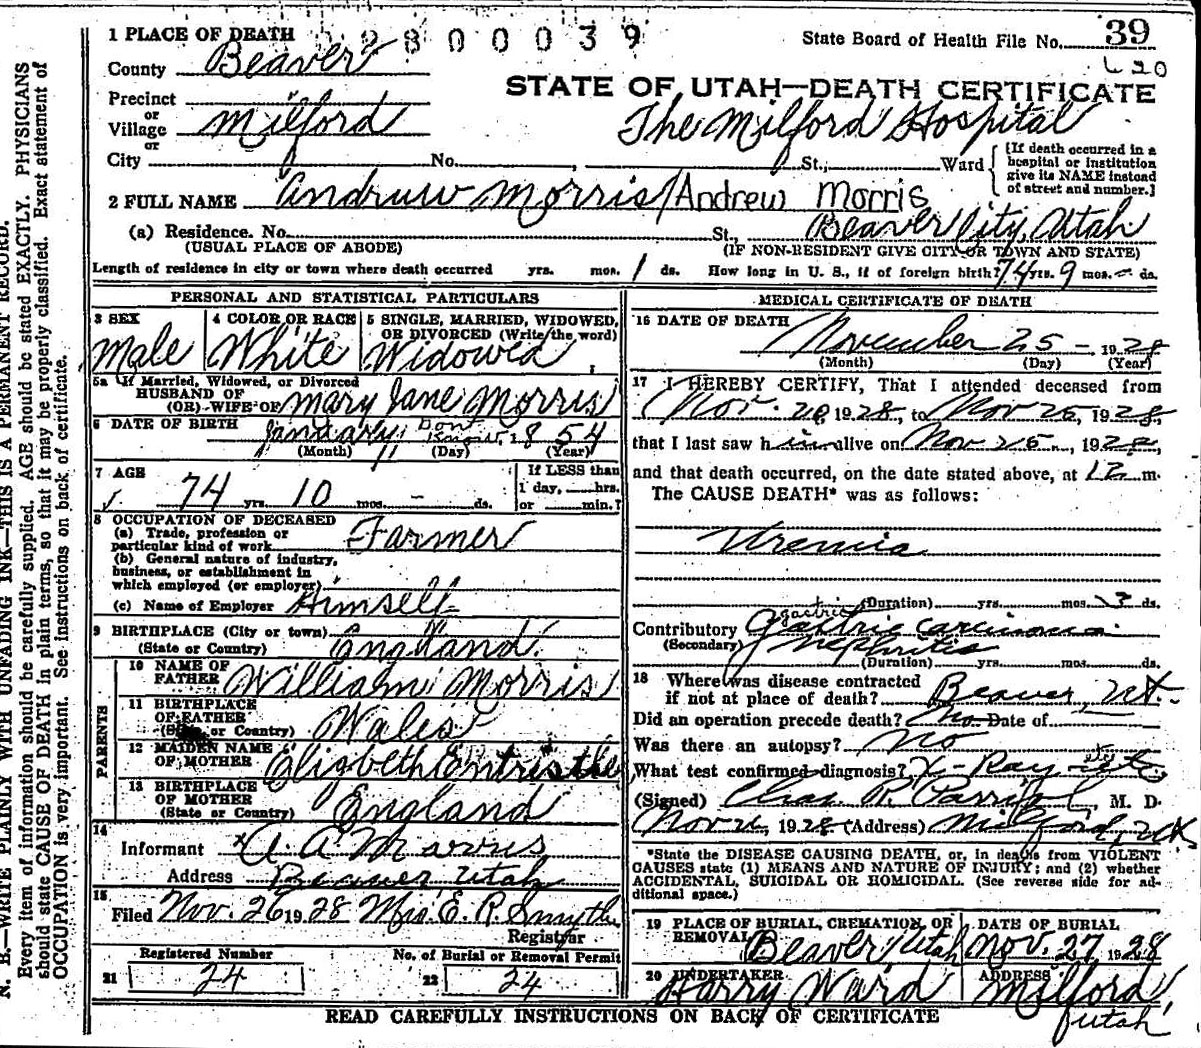 2800039
State Board of Health File No. 39
L 20
1 PLACE OF DEATH
County Beaver
STATE OF UTAH—DEATH CERTIFICATE
Precinct
or
Village Milford
or
The Milford Hospital
City No. St., Ward
[If death occurred in a hospital or institution give its NAME instead of street and number.]
2 FULL NAME Andruw Morris/Andrew Morris
(a) Residence. No. St., Beaver City, Utah
(USUAL PLACE OF ABODE) (IF NON-RESIDENT GIVE CITY OR TOWN AND STATE)
Length of residence in city or town where death occurred yrs. mos. 1 ds. How long in U. S., if of foreign birth? 74 yrs. 9 mos. – ds.
PERSONAL AND STATISTICAL PARTICULARS
3 SEX
Male
4 COLOR OR RACE
White
5 SINGLE, MARRIED, WIDOWED, OR DIVORCED (Write the word)
Widowed
5a If Married, Widowed, or Divorced
HUSBAND OF
(OR) WIFE OF Mary Jane Morris
6 DATE OF BIRTH January Dont Know 1854
(Month) (Day) (Year)
7 AGE
74 yrs. 10 mos. – ds.
If LESS than
1 day, hrs.
or min.?
8 OCCUPATION OF DECEASED
(a) Trade, profession or
particular kind of work Farmer
(b) General nature of industry,
business, or establishment in
which employed (or employer)
(c) Name of Employer Himself
9 BIRTHPLACE (City or town)
(State or Country) England
PARENTS
10 NAME OF
FATHER William Morris
11 BIRTHPLACE
OF FATHER
(State or Country) Wales
12 MAIDEN NAME
OF MOTHER Elizbeth Entristle
13 BIRTHPLACE
OF MOTHER
(State or Country) England
14
Informant A. A Morris
Address Beaver Utah
15
Filed Nov. 26 1928 Mrs. E. R. Smyth
Registrar
Registered Number
21 24
No. of Burial or Removal Permit
22 24
MEDICAL CERTIFICATE OF DEATH
16 DATE OF DEATH
November 25 – 1928
(Month) (Day) (Year)
17 I HEREBY CERTIFY, That I attended deceased from
Nov. 20, 1928, to Nov 25, 1928,
that I last saw him alive on Nov 25, 1928,
and that death occurred, on the date stated above, at 12 m.
The CAUSE DEATH* was as follows:
Uremia
(Duration) yrs. mos. 3 ds.
gastric
Contributory Gastric carcinoma
(Secondary) Nephritis
(Duration) yrs. mos. ds.
18 Where was disease contracted
if not at place of death? Beaver, Ut.
Did an operation precede death? no Date of
Was there an autopsy? No
What test confirmed diagnosis? X-Ray etc
etc
(Signed) Chas R. Parrish, M. D.
Nov 26, 1928 (Address) Milford, Ut
*State the DISEASE CAUSING DEATH, or, in deaths from VIOLENT
CAUSES state (1) MEANS AND NATURE OF INJURY; and (2) whether
ACCIDENTAL, SUICIDAL OR HOMICIDAL. (See reverse side for ad-
ditional space.)
19 PLACE OF BURIAL, CREMATION, OR
REMOVAL Beaver Utah
DATE OF BURIAL
Nov. 27 1928
20 UNDERTAKER
Harry Ward
ADDRESS
Milford, Utah
READ CAREFULLY INSTRUCTIONS ON BACK OF CERTIFICATE
N. B.—WRITE PLAINLY WITH UNFADING INK—THIS IS A PERMANENT RECORD.
Every item of information should be carefully supplied. AGE should be stated EXACTLY. PHYSICIANS
should state CAUSE OF DEATH in plain terms, so that it may be properly classified. Exact statement of
OCCUPATION is very important. See instructions on back of certificate.